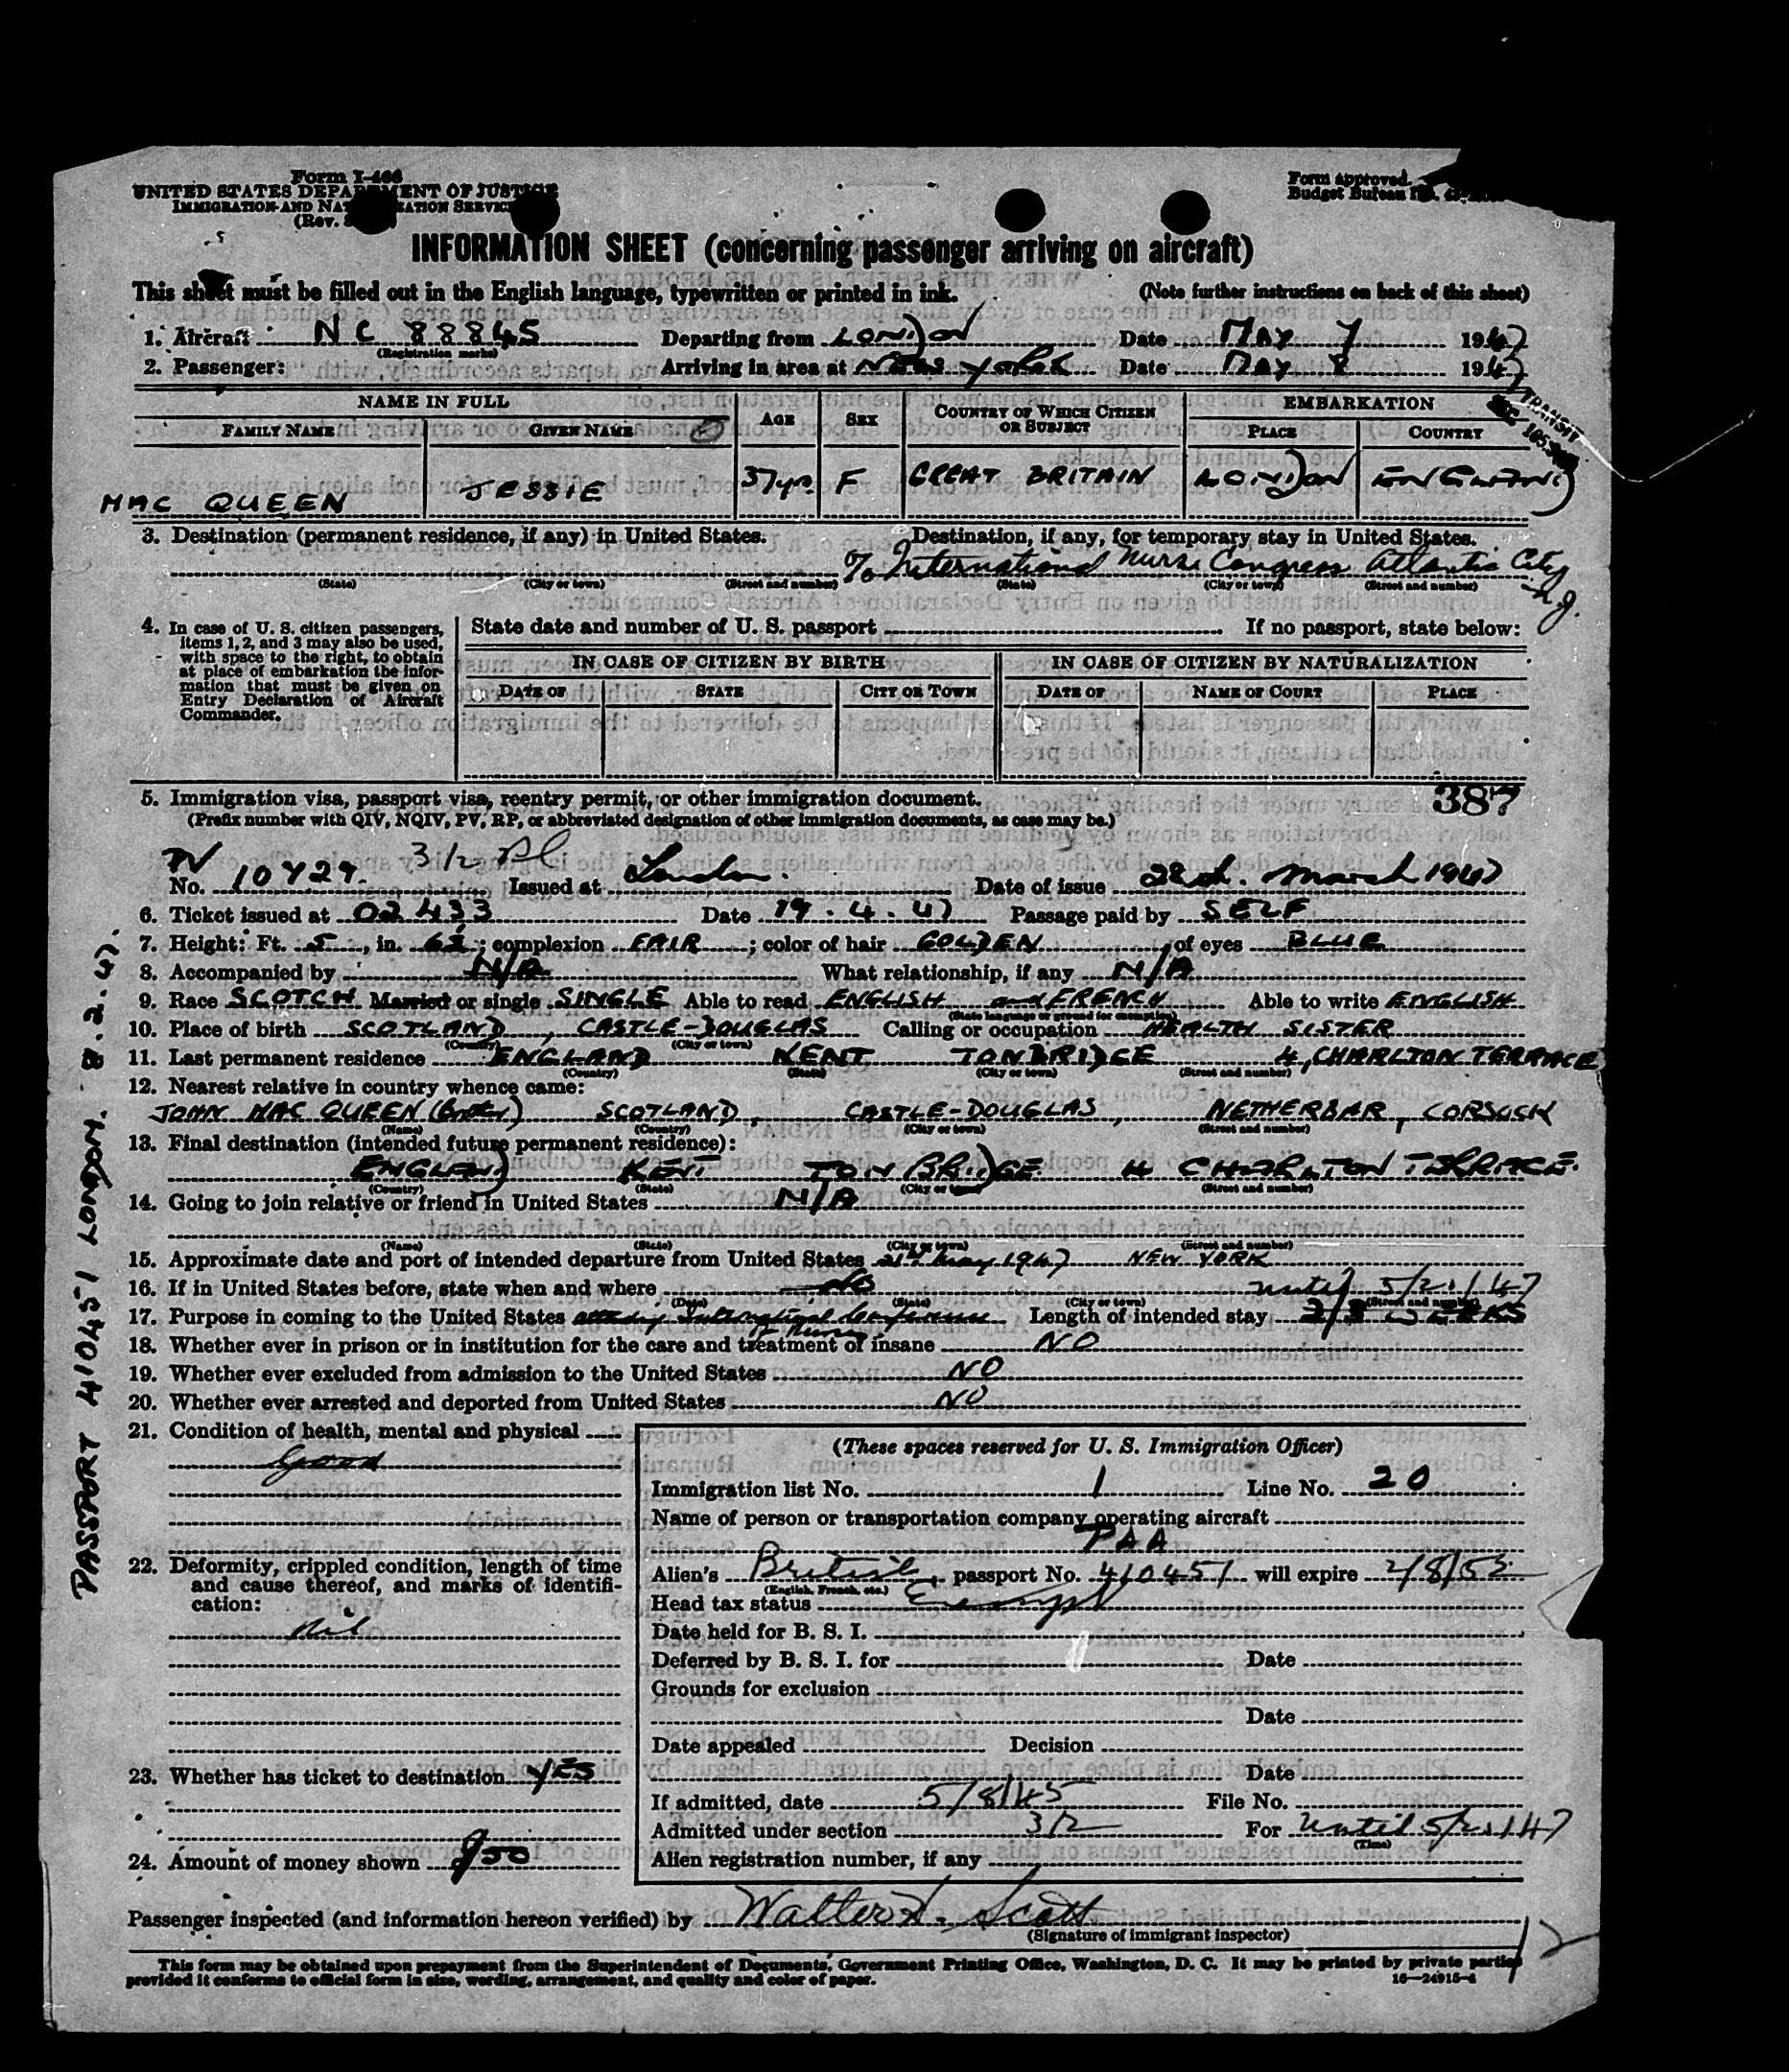 Form I-466
UNITED STATES DEPARTMENT OF JUSTICE
IMMIGRATION AND NATURALIZATION SERVICE
(Rev.
Form approved.
Budget Bureau No.
INFORMATION SHEET (concerning passenger arriving on aircraft)
This sheet must be filled out in the English language, typewritten or printed in ink. (Note further instructions on back of this sheet)
1. Aircraft NC 88845 Departing from LONDON Date MAY 7 1947
(Registration marks)
2. Passenger: Arriving in area at NEW YORK Date MAY 8 1947
TRANSIT
NAME IN FULL AGE SEX COUNTRY OF WHICH CITIZEN OR SUBJECT EMBARKATION
FAMILY NAME GIVEN NAME PLACE COUNTRY
MAC QUEEN JESSIE 37 yrs. F GREAT BRITAIN LONDON ENGLAND
3. Destination (permanent residence, if any) in United States. Destination, if any, for temporary stay in United States.
c/o International Nurse Congress Atlantic City
N.J.
(State) (City or town) (Street and number) (State) (City or town) (Street and number)
4. In case of U. S. citizen passengers, items 1, 2, and 3 may also be used, with space to the right, to obtain at place of embarkation the information that must be given on Entry Declaration of Aircraft Commander.
State date and number of U. S. passport If no passport, state below:
IN CASE OF CITIZEN BY BIRTH IN CASE OF CITIZEN BY NATURALIZATION
DATE OF STATE CITY OR TOWN DATE OF NAME OF COURT PLACE
387
5. Immigration visa, passport visa, reentry permit, or other immigration document.
(Prefix number with QIV, NQIV, PV, RP, or abbreviated designation of other immigration documents, as case may be.)
PV 3/2
No. 10429 Issued at London. Date of issue 22nd. March 1947
6. Ticket issued at 02433 Date 19.4.47 Passage paid by SELF
7. Height: Ft. 5, in. 6½; complexion FAIR; color of hair GOLDEN, of eyes BLUE
8. Accompanied by N/A What relationship, if any N/A
9. Race SCOTCH Married or single SINGLE Able to read ENGLISH and FRENCH Able to write ENGLISH
(State language or ground for exemption)
10. Place of birth SCOTLAND, CASTLE-DOUGLAS Calling or occupation HEALTH SISTER
(Country) (City or town)
11. Last permanent residence ENGLAND KENT TONBRIDGE 4, CHARLTON TERRACE
(Country) (State) (City or town) (Street and number)
12. Nearest relative in country whence came:
JOHN MAC QUEEN (Brother) SCOTLAND, CASTLE-DOUGLAS, NETHERBAR, CORSOCK
(Name) (Country) (City or town) (Street and number)
13. Final destination (intended future permanent residence):
ENGLAND KENT TONBRIDGE 4 CHARLTON TERRACE.
(Country) (State) (City or town) (Street and number)
14. Going to join relative or friend in United States N/A
(Name) (State) (City or town) (Street and number)
15. Approximate date and port of intended departure from United States 21st May 1947 NEW YORK
16. If in United States before, state when and where No until 5/21/47
(Date) (State) (City or town) (Street and number)
17. Purpose in coming to the United States attending International Conference of Nurses Length of intended stay 2/3 WEEKS
18. Whether ever in prison or in institution for the care and treatment of insane NO
19. Whether ever excluded from admission to the United States NO
20. Whether ever arrested and deported from United States NO
21. Condition of health, mental and physical
Good
22. Deformity, crippled condition, length of time and cause thereof, and marks of identification:
Nil
23. Whether has ticket to destination YES
24. Amount of money shown $50
(These spaces reserved for U. S. Immigration Officer)
Immigration list No. 1 Line No. 20
Name of person or transportation company operating aircraft
PAA
Alien's British, passport No. 410451 will expire 2/8/52
(English, French, etc.)
Head tax status Exempt
Date held for B. S. I.
Deferred by B. S. I. for Date
Grounds for exclusion
Date
Date appealed Decision
Date
If admitted, date 5/8/45 File No.
Admitted under section 3/2 For until 5/21/47
(Time)
Alien registration number, if any
Passenger inspected (and information hereon verified) by Walter H. Scott
(Signature of immigrant inspector)
This form may be obtained upon prepayment from the Superintendent of Documents, Government Printing Office, Washington, D. C. It may be printed by private parties
provided it conforms to official form in size, wording, arrangement, and quality and color of paper. 16—24915-4
PASSPORT 410451 LONDON. 8.2.47.